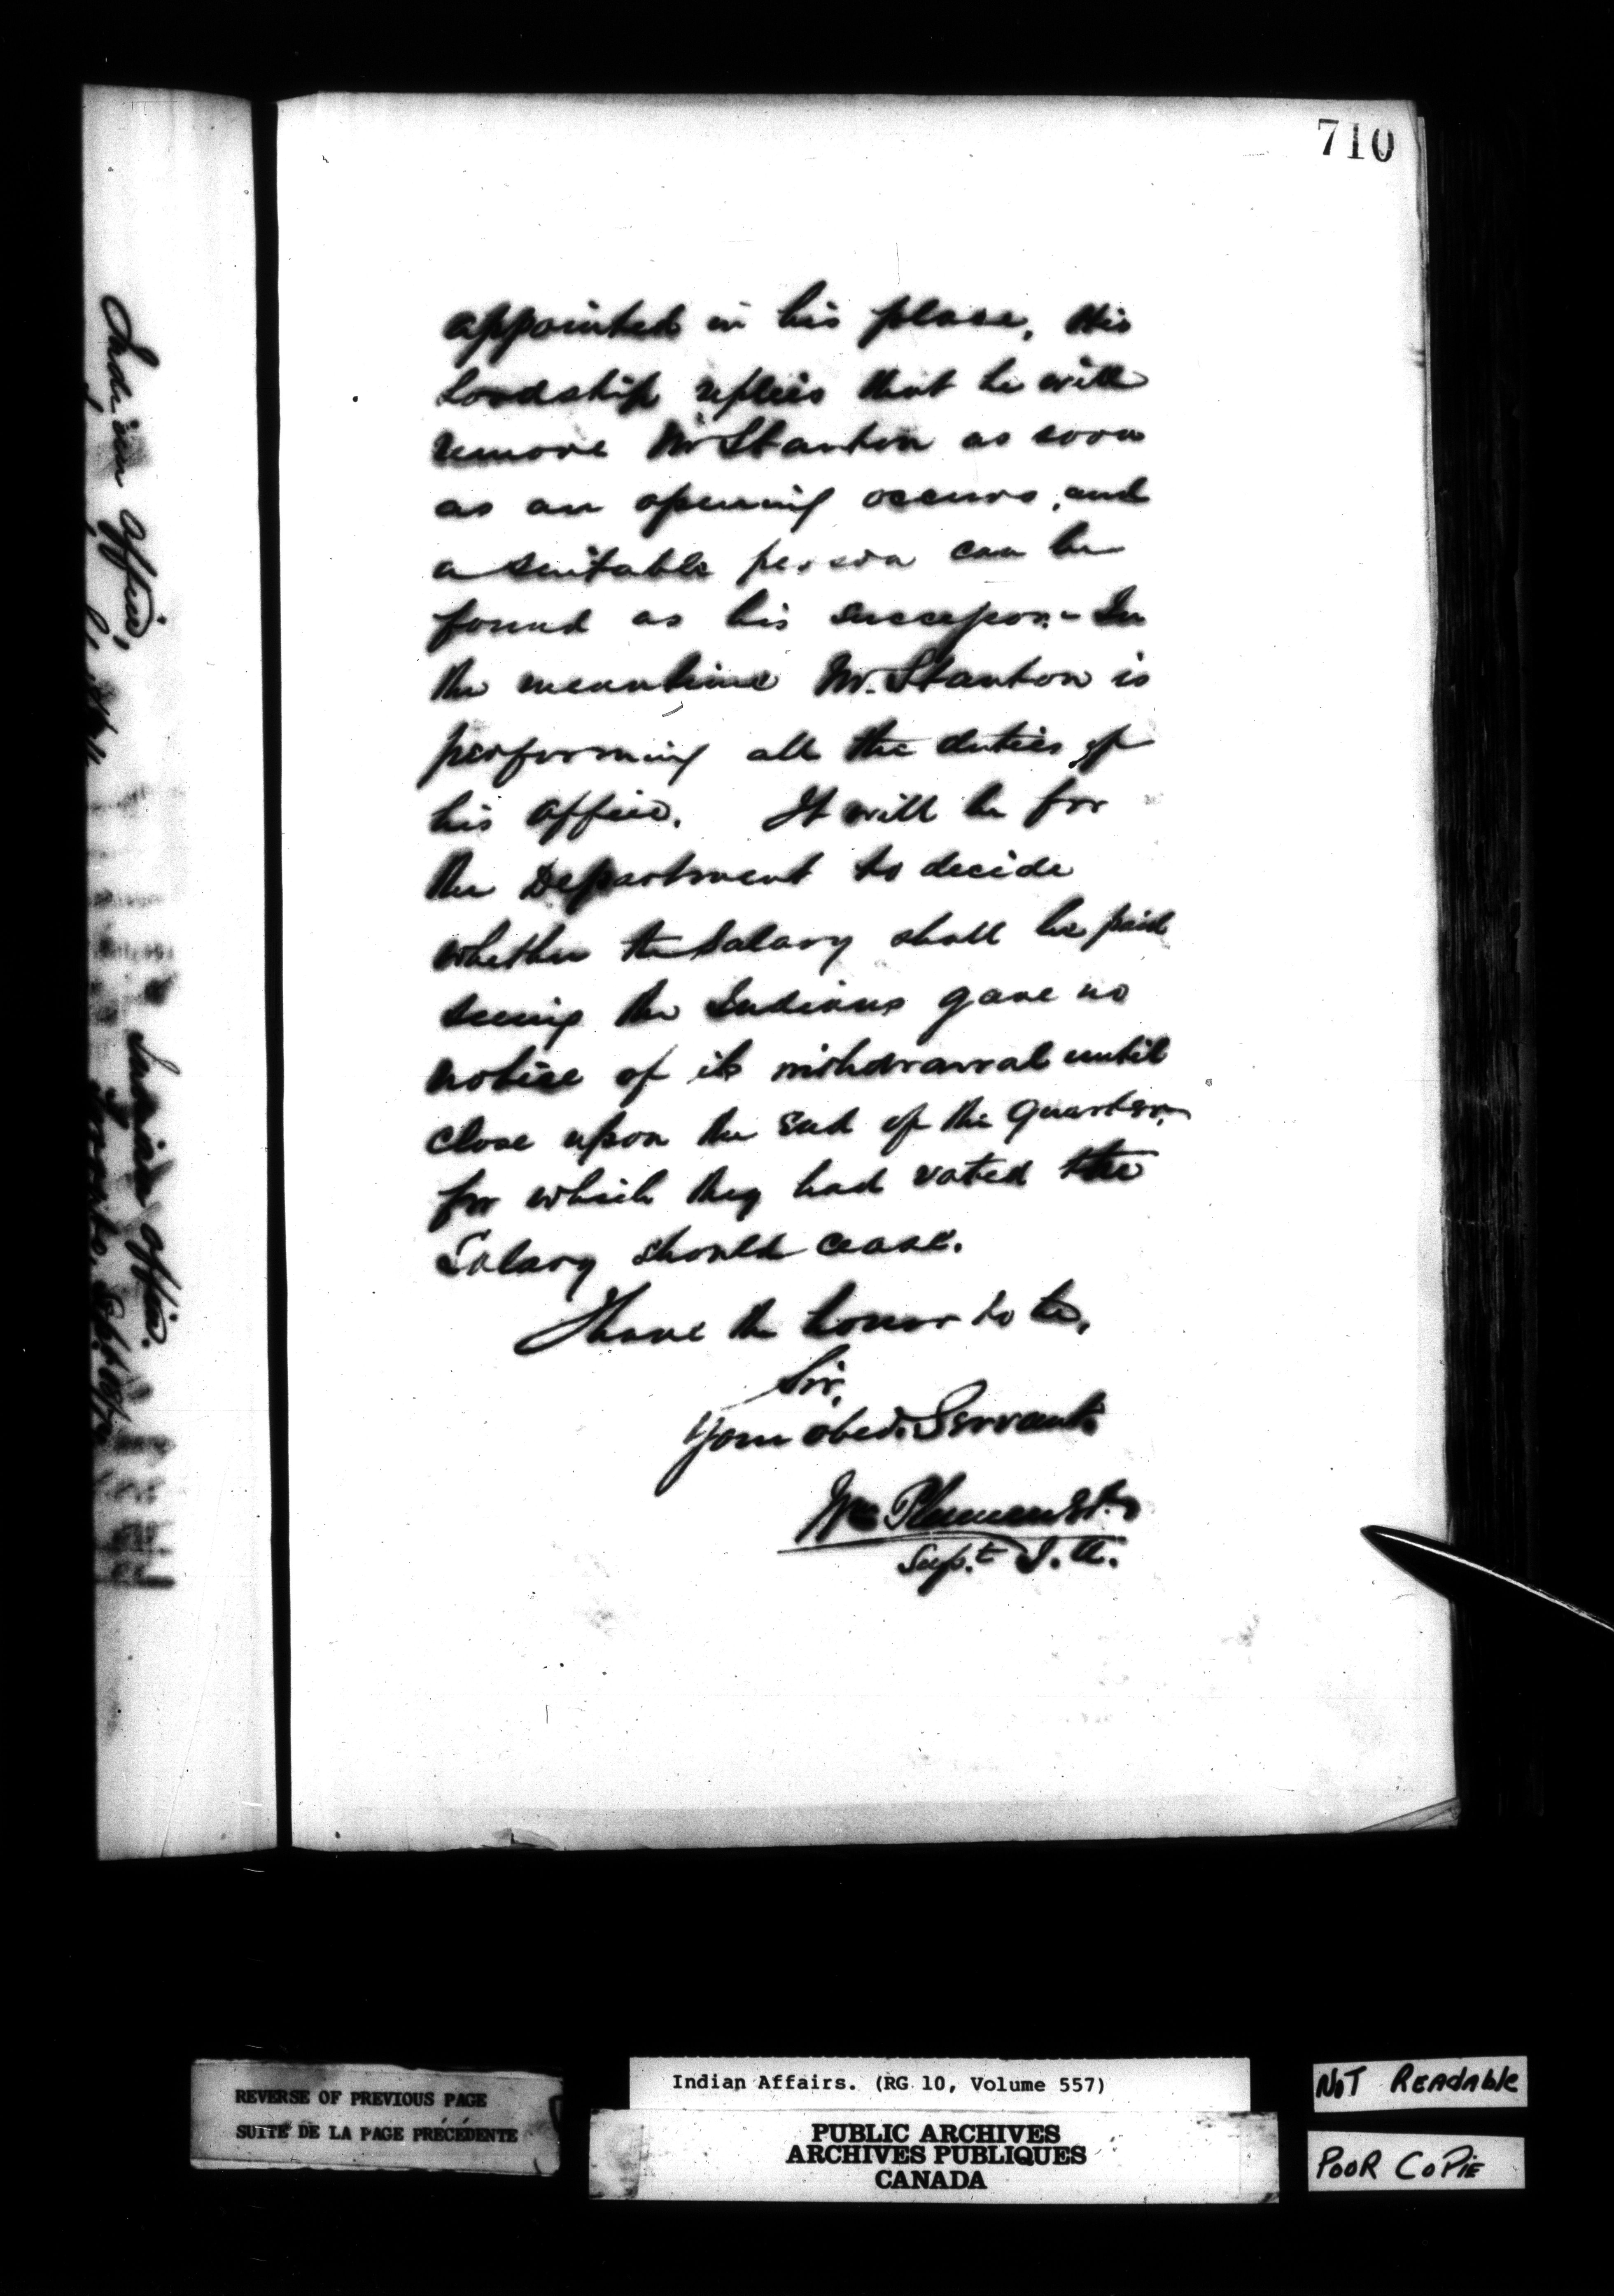 710
appointed in his place, His
Lordship replies that he will
remove Mr Stanton as soon
as an opening occurs, and
a suitable person can be
found as his successor. - In
the meantime Mr. Stanton is
performing all the duties of
his office. It will be for
the Department to decide
whether the salary shall be paid
seeing the Indians gave no
notice of its withdrawal until
close upon the End of the Quarter,
for which they had voted the
Salary should cease.
I have the honor to be,
Sir,
Your obed. Servant.
Wm Plummer
Supt. I. A.
Indian Office,
Indian Office.
Toronto, Sept
REVERSE OF PREVIOUS PAGE
SUITE DE LA PAGE PRÉCÉDENTE
Indian Affairs. (RG 10, Volume 557)
PUBLIC ARCHIVES
ARCHIVES PUBLIQUES
CANADA
NOT READABLE
POOR COPIE